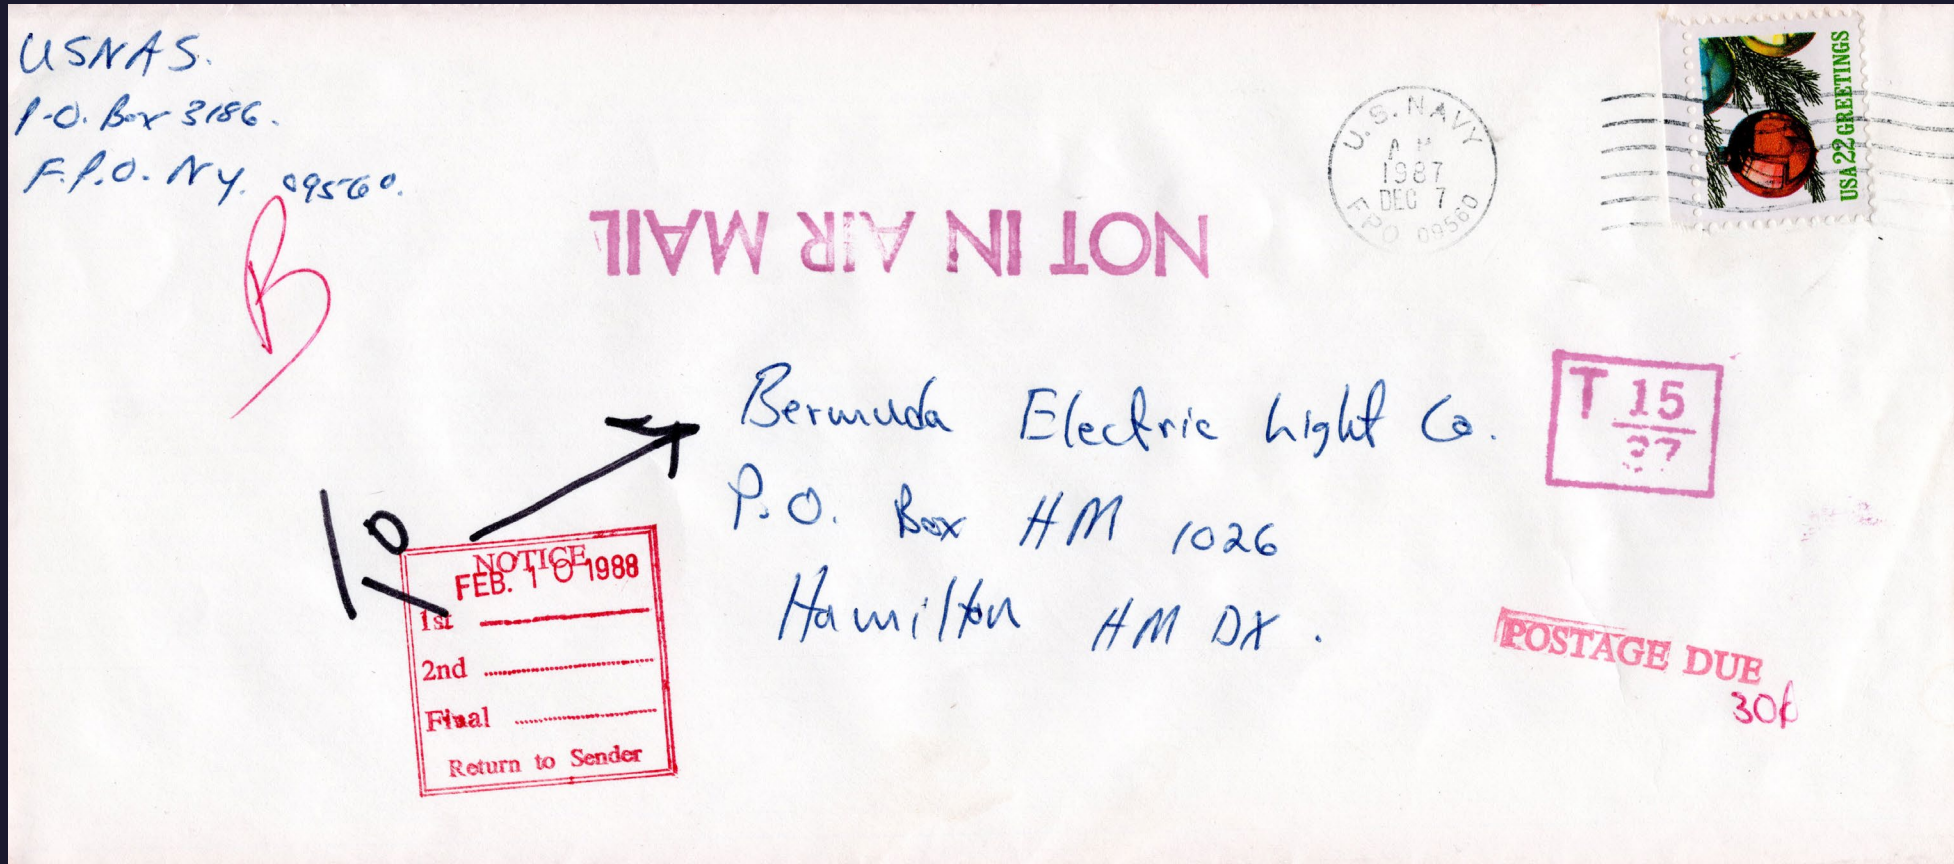 USNAS.
P.O. Box 3186.
F.P.O. NY. 09560.
B
NOT IN AIR MAIL
U.S. NAVY
1987
DEC 7
FPO 09560
USA 22 GREETINGS
Bermuda Electric Light Co.
P.O. Box HM 1026
Hamilton HM DX.
T 15
POSTAGE DUE
30¢
NOTICE
FEB. 10 1988
1st
2nd
Final
Return to Sender